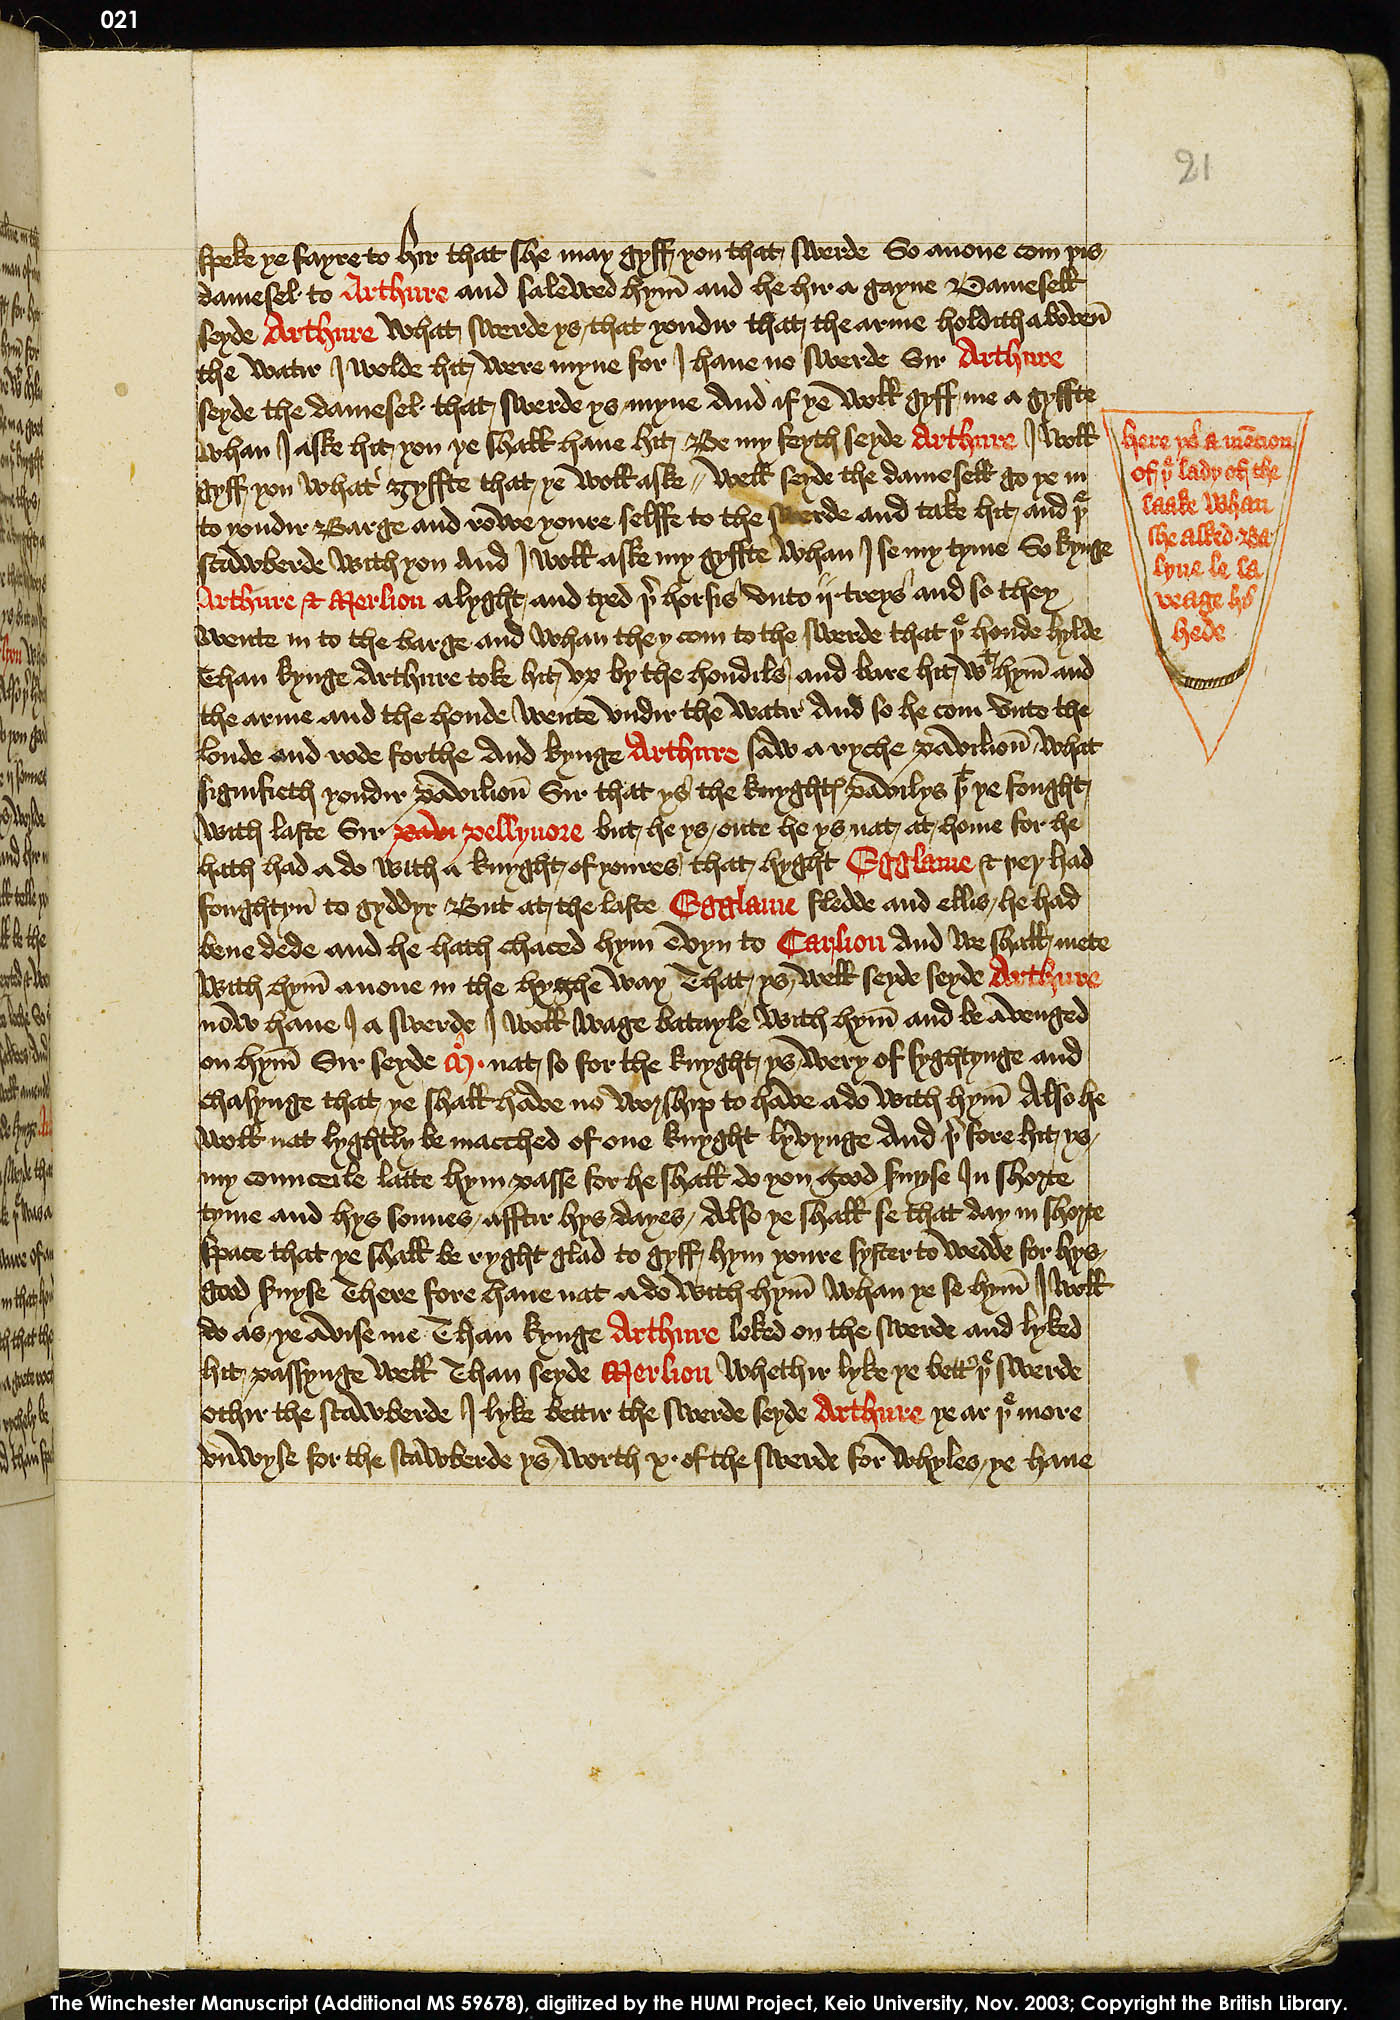 021
21
speke ye fayre to hir that she may gyff you that swerde So anone com þis
damesel to Arthure and salewed hym̄ and he hir a gayne Damesell
seyde Arthure What swerde ys that yondir that the arme holdith aboven̄
the Watir I wolde hit were myne for I haue no swerde Sir Arthure
seyde the damesel that swerde ys myne And if ye woll gyff me a gyffte
whan I aske hit you ye shall haue hit Be my feyth seyde Arthure I woll
gyff you what gyffte that ye woll aske // Well seyde the damesell go ye in
to yondir Barge and rowe youre selffe to the swerde and take hit and þe
scawberde with you And I woll aske my gyffte whan I se my tyme So kynge
Arthure & Merlion alyght and tyed þr horsis vnto ij treys and so they
wente in to the barge and whan they com to the swerde that þe honde hylde
Than kynge Arthure toke hit vp by the hondils and bare hit wt hym̄ and
the arme and the honde wente vndir the watir And so he com vnto the
londe and rode forthe And kynge Arthure saw a ryche pavilion̄ what
signifieth yondir pavilion̄ Sir that ys the knyghtes pavilys þt ye fought
with laste Sir pavi pellynore but he ys oute he ys nat at home for he
hath had a do with a knyght of youres that hyght Egglame & þey had
foughtyn̄ to gyddyr But at the laste Egglame fledde and ellis he had
bene dede and he hath chaced hym evyn to Carlion And we shall mete
with hym̄ anone in the hyghe way That ys well seyde seyde Arthure
now haue I a swerde I woll wage batayle with hym̄ and be avenged
on hym̄ Sir seyde M. nat so for the knyght ys wery of fyghtynge and
chasynge that ye shall have no worship to have a do with hym̄ Also he
woll nat lyghtly be macched of one knyght lyvynge And þr fore hit ys
my counceile latte hym passe for he shall do you good suyse In shorte
tyme and hys sonnes afftir hys dayes Also ye shall se that day in shorte
space that ye shall be ryght glad to gyff hym youre syster to wedde for hys
good suyse There fore haue nat a do with hym̄ whan ye se hym̄ I woll
do as ye avise me Than kynge Arthure loked on the swerde and lyked
hit passynge well Than seyde Merlion Whethir lyke ye bettr þe swerde
othir the scawberde I lyke bettir the swerde seyde Arthure ye ar þe more
vnwyse for the scawberde ys worth x. of the swerde for whyles ye haue
here ys a mēcion
of þe lady of the
laake whan
she asked Ba
lyne le sa
veage hys
hede
The Winchester Manuscript (Additional MS 59678), digitized by the HUMI Project, Keio University, Nov. 2003; Copyright the British Library.